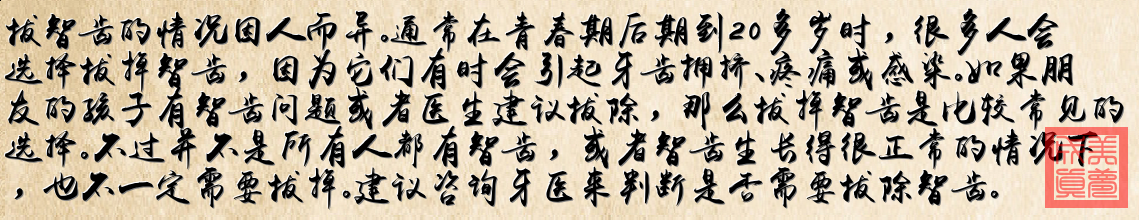 拔智齿的情况因人而异。通常在青春期后期到20多岁时，很多人会
选择拔掉智齿，因为它们有时会引起牙齿拥挤、疼痛或感染。如果朋
友的孩子有智齿问题或者医生建议拔除，那么拔掉智齿是比较常见的
选择。不过并不是所有人都有智齿，或者智齿生长得很正常的情况下
，也不一定需要拔掉。建议咨询牙医来判断是否需要拔除智齿。